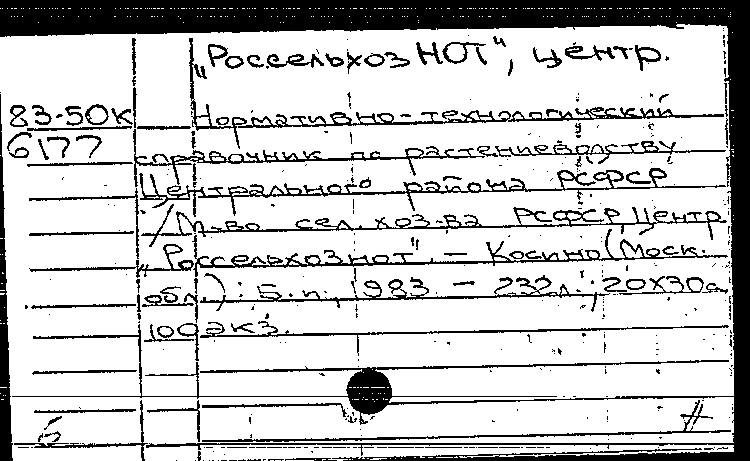 „Россельхоз НОТ", центр.
83-50к Нормативно-технологический
6177 справочник по растениеводству
Центрального района РСФСР
/М-во сел. хоз-ва РСФСР, Центр
„Россельхознот". – Косино (Моск.
обл.): Б.п., 1983. – 232л.; 20X30см
100экз.
Б